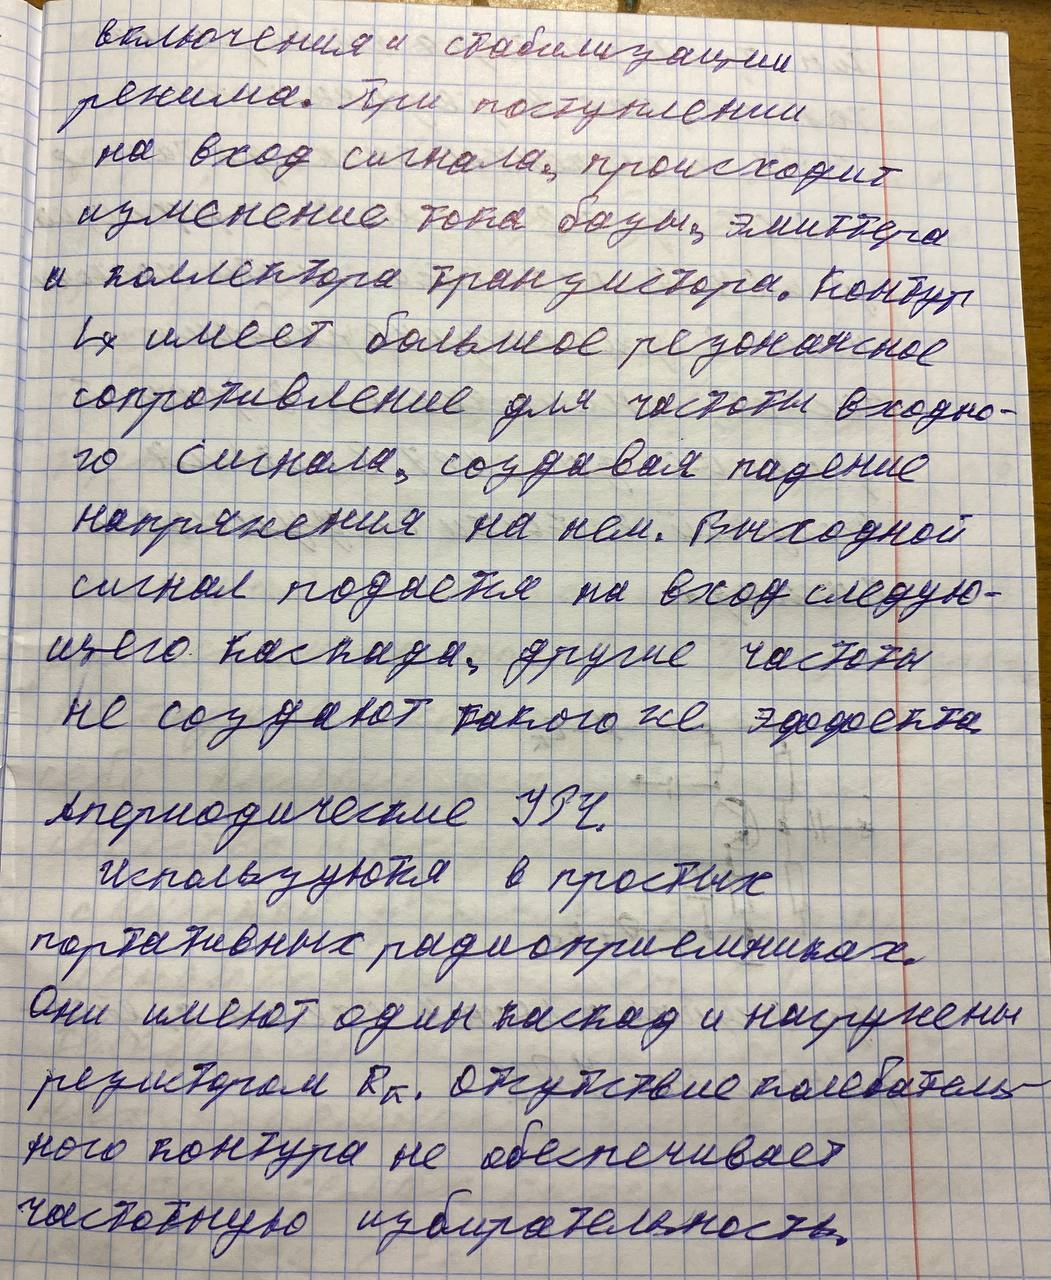 включения и стабилизации
режима. При поступлении
на вход сигнала, происходит
изменение тока базы, эмиттера
и коллектора транзистора. Контур
имеет большое резонансное
сопротивление для частоты входно-
го сигнала, создавая падение
напряжения на нем. Выходной
сигнал подается на вход следую-
щего каскада, другие частоты
не создают такого же эффекта
Апериодические УРЧ.
Используются в простых
портативных радиоприемниках.
Они имеют один каскад и нагружены
резистором Rк. Отсутствие колебатель-
ного контура не обеспечивает
частотную избирательность.